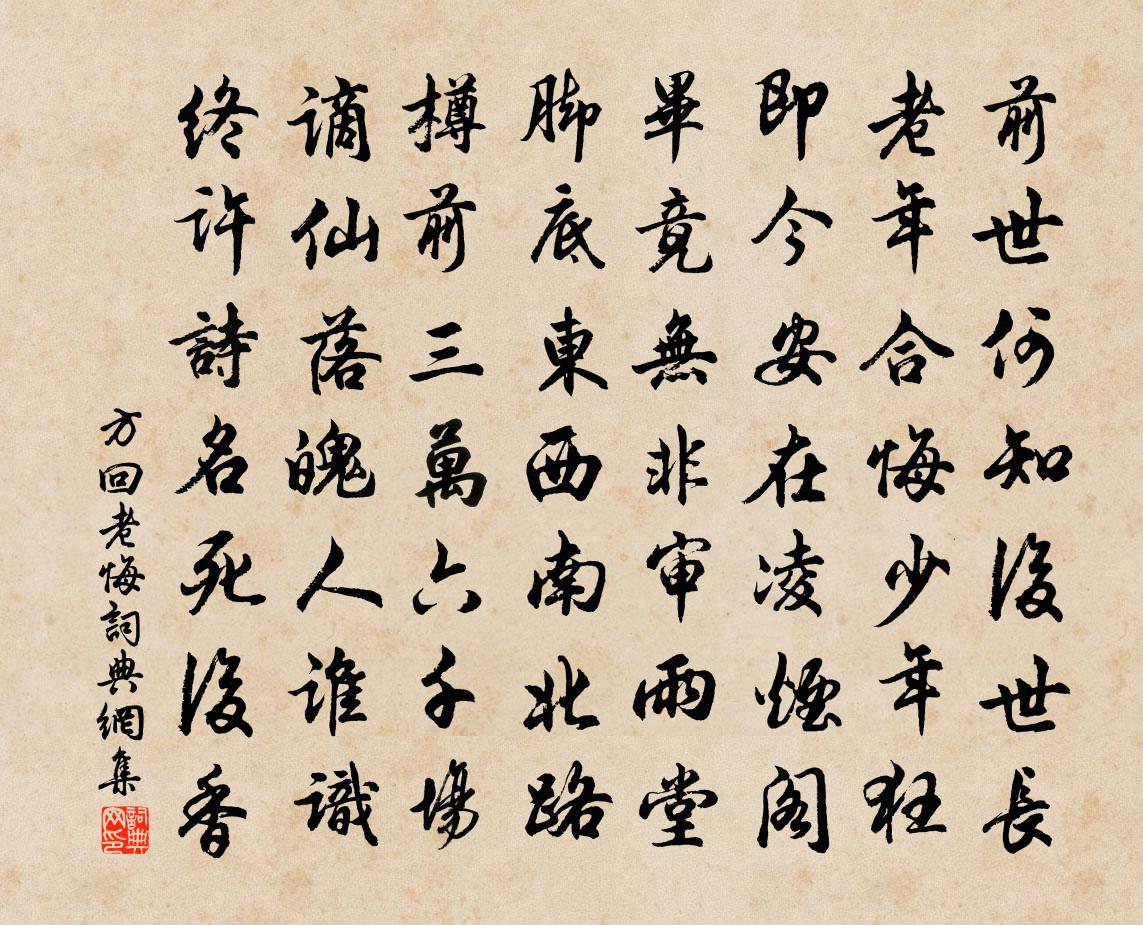 前世何知後世長
老年合悔少年狂
即今安在凌煙閣
畢竟無非審雨堂
脚底東西南北路
樽前三萬六千場
謫仙落魄人誰識
終許詩名死後香
方回老悔詞典網集
詞典網印